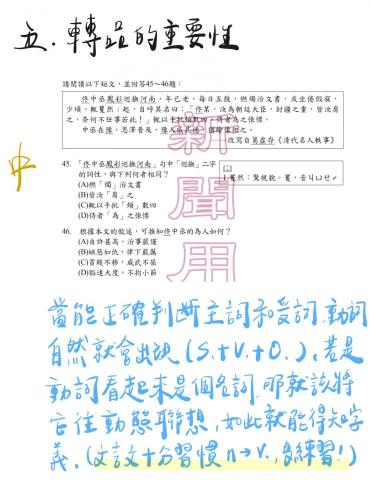 五.轉品的重要性
請閱讀以下短文,並回答45~46題:
佟中丞鳳彩巡撫河南,年已老,每日五鼓,燃燭治文書,或坐倦假寐,
少頃,輒矍然1起,自呼其名曰:「佟某,汝為朝廷大臣,封疆之重,皆汝肩
之,奈何不任事若此!」輒以手批頰數四,侍者為之悚慄。
中丞在豫,恩澤普及,豫人
改寫自葛虛存《清代名人軼事》
中
45. 「佟中丞鳳彩巡撫河南」句中「巡撫」二字
的詞性,與下列何者相同?
(A)燃「燭」治文書
(B)皆汝「肩」之
(C)輒以手批「頰」數四
(D)侍者「為」之悚慄
1.矍然:驚視貌。矍,音ㄐㄩㄝˊ
46. 根據本文的敘述,可推知佟中丞的為人如何?
(A)自許甚高,治事嚴謹
(B)嫉惡如仇,律下嚴厲
(C)貧賤不移,威武不屈
(D)豁達大度,不拘小節
新聞用
當能正確判断主詞和受詞,動詞
自然就會出現(S.+V.+O.)。若是
動詞看起來是個名詞,那就該將
它往動態聯想,如此就能得知字
義。(文言文十分習慣n→v.,多練習!)